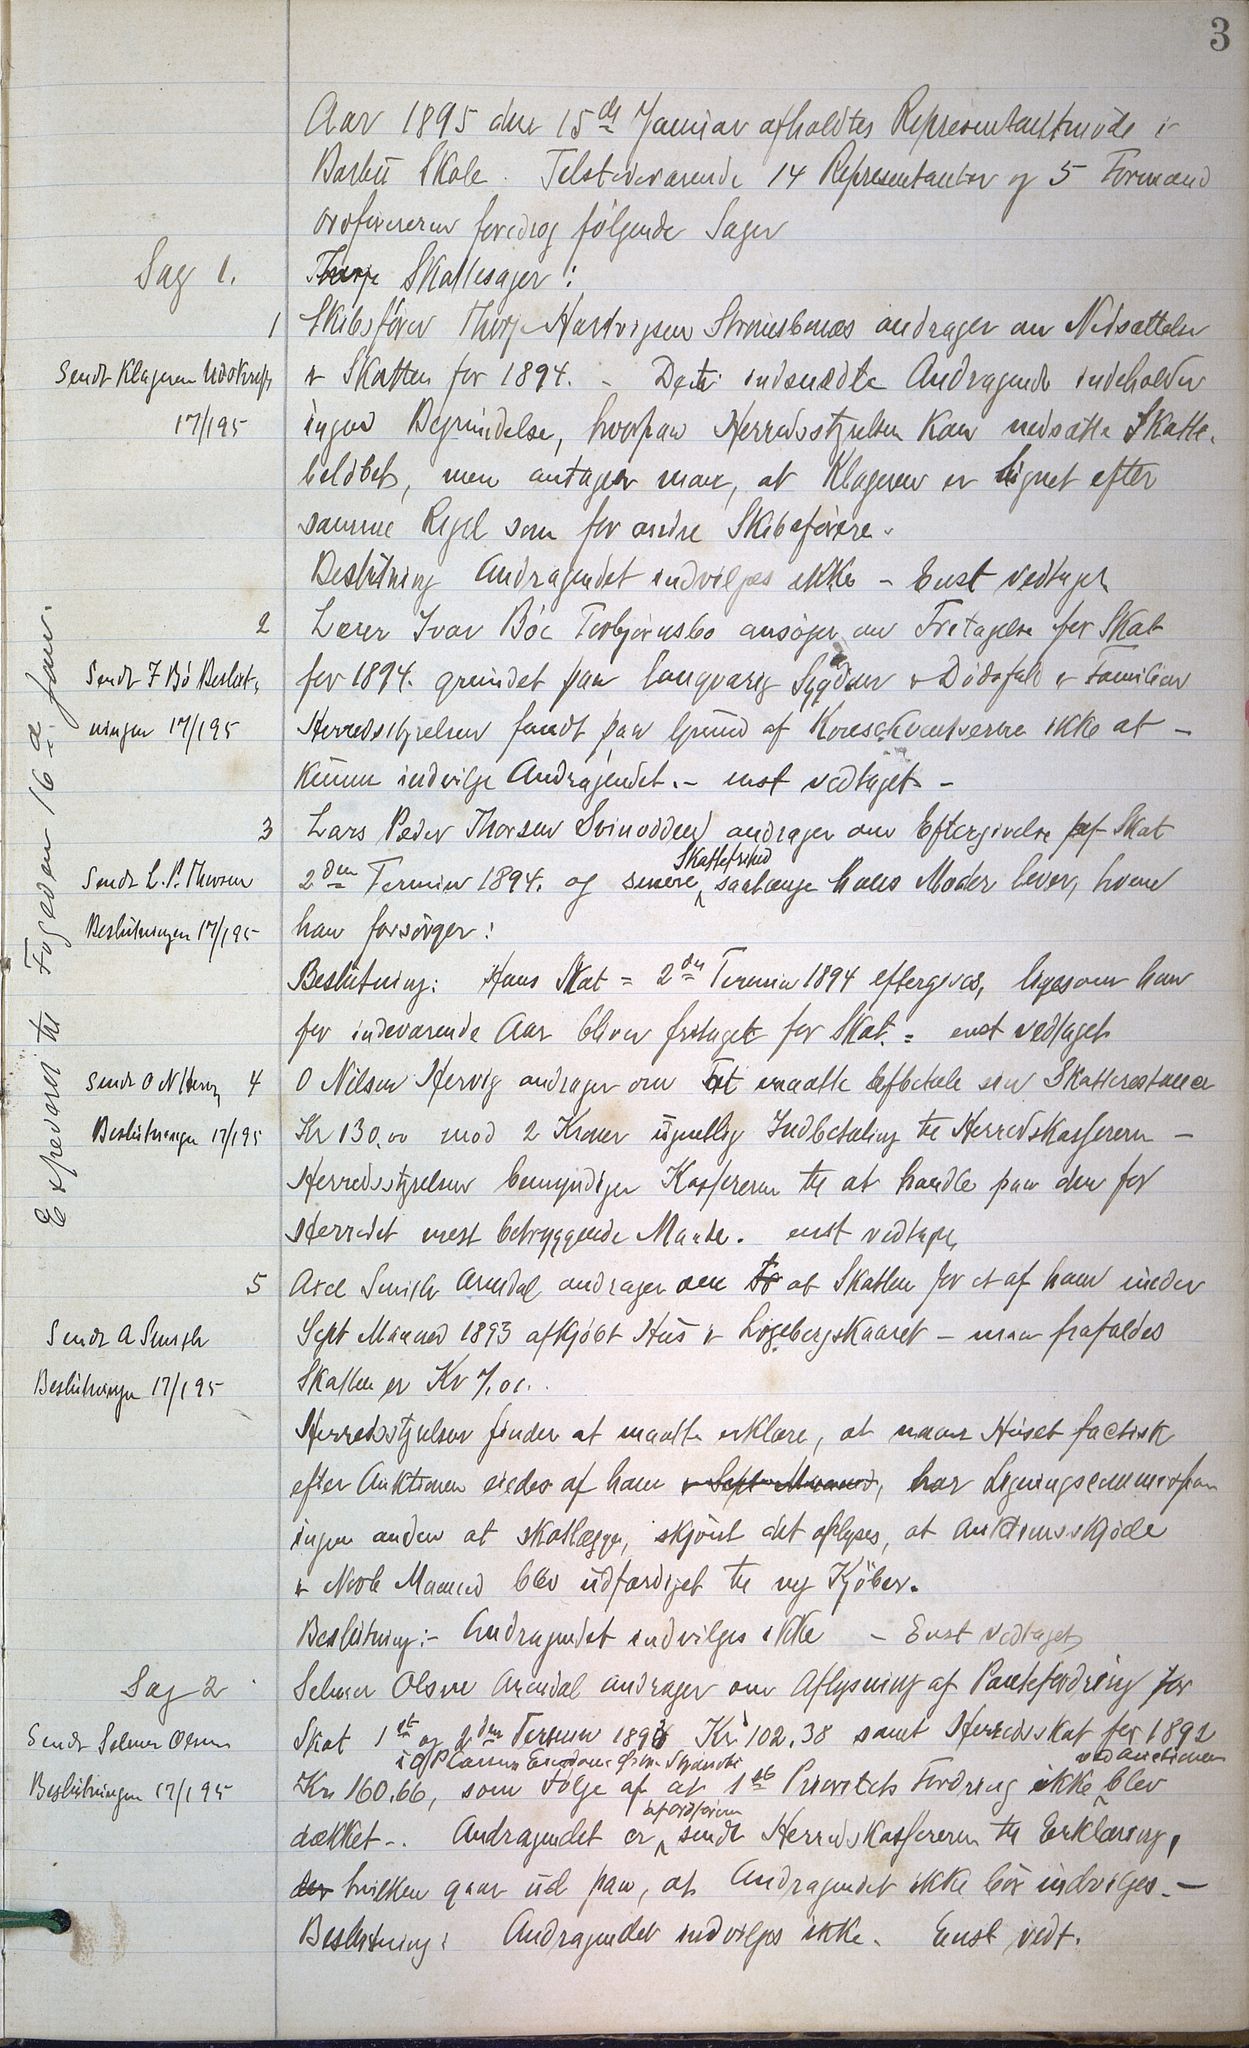 3
Aar 1895 den 15de Januar afholdtes Repræsentantmöde i
Barbu Skole. Tilstedeværende 14 Repræsentanter og 5 Formænd
Ordföreren foredrog fölgende Sager
Sag 1. Skattesager:
1 Skibsförer Thorje Hartvigsen Strømsbunæs andrager om Nedsættelse
Sendt Klageren Udskrift i Skatten for 1894. - Det indsendte Andragende indeholder
17/1 95 ingen Begrundelse, hvorpaa Herredsstyrelsen kan nedsætte Skatte-
belöbet, men antager man, at Klageren er lignet efter
samme Regel som for andre Skibsförere.
Beslutning Andragendet indvilges ikke - Enst vedtaget
2 Lærer Ivar Böe Torbjörnsbo ansöger om Fritagelse for Skat
Sendt I Bö Beslut- for 1894. grundet paa langvarig Sygdom & Dödsfald i Familien
ningen 17/1 95 Herredsstyrelsen fandt paa Grund af Konsekventserne ikke at -
kunne indvilge Andragendet. - enst vedtaget -
3 Lars Peder Thorsen Svinodden andrager om Eftergivelse af Skat
Sendt L. P. Thorsen 2den Termin 1894. og senere Skattefrihed saalænge hans Moder lever, hvem
Beslutningen 17/1 95 han forsörger:
Beslutning: Hans Skat = 2den Termin 1894 eftergives, ligesom han
for indeværende Aar bliver fritaget for Skat. = enst vedtaget
Sendt O N Hervig 4 O Nilsen Hervig andrager om at maatte afbetale sin Skatterestance
Beslutningen 17/1 95 Kr 130,00 mod 2 Kroner ugentlig Indbetaling til Herredskassereren -
Herredsstyrelsen bemyndiger Kassereren til at handle paa den for
Herredet mest betryggende Maade. enst vedtaget
5 Axel Smith Arendal andrager om at Skatten for et af ham under
Sendt A Smith Sept Maaned 1893 afkjöbt Hus i Lögebergskaaret - maa frafaldes
Beslutningen 17/1 95 Skatten er Kr 7.01.
Herredsstyrelsen finder at maatte erklære, at naar Huset factisk
efter Auktionen eiedes af ham i Sept Maaned, har Ligningscommissionen
ingen anden at skatlægge, skjönt det oplyses, at Auktionsskjöde
i Novb Maaned blev udfærdiget til ny Kjöber.
Beslutning:- Andragendet indvilges ikke - Enst vedtaget
Sag 2 Selmer Olsen Arendal andrager om Aflysning af Pantefordring for
Sendt Selmer Olsen Skat 1ste og 2den Termin 1893 Kr 102.38 samt Herredsskat for 1892
i O P Eiendom
ved auctionen
Beslutningen 17/1 95 Kr. 160,66, som Fölge af at 1ste Prioritets Fordring ikke blev
dækket-. Andragendet er af Ordföreren sendt Herredskassereren til Erklæring,
der hvilken gaar ud paa, at Andragendet ikke bör indvilges. -
Beslutning: Andragendet indvilges ikke. Enst vedt.
Expederet til Fogden 16de Jan.